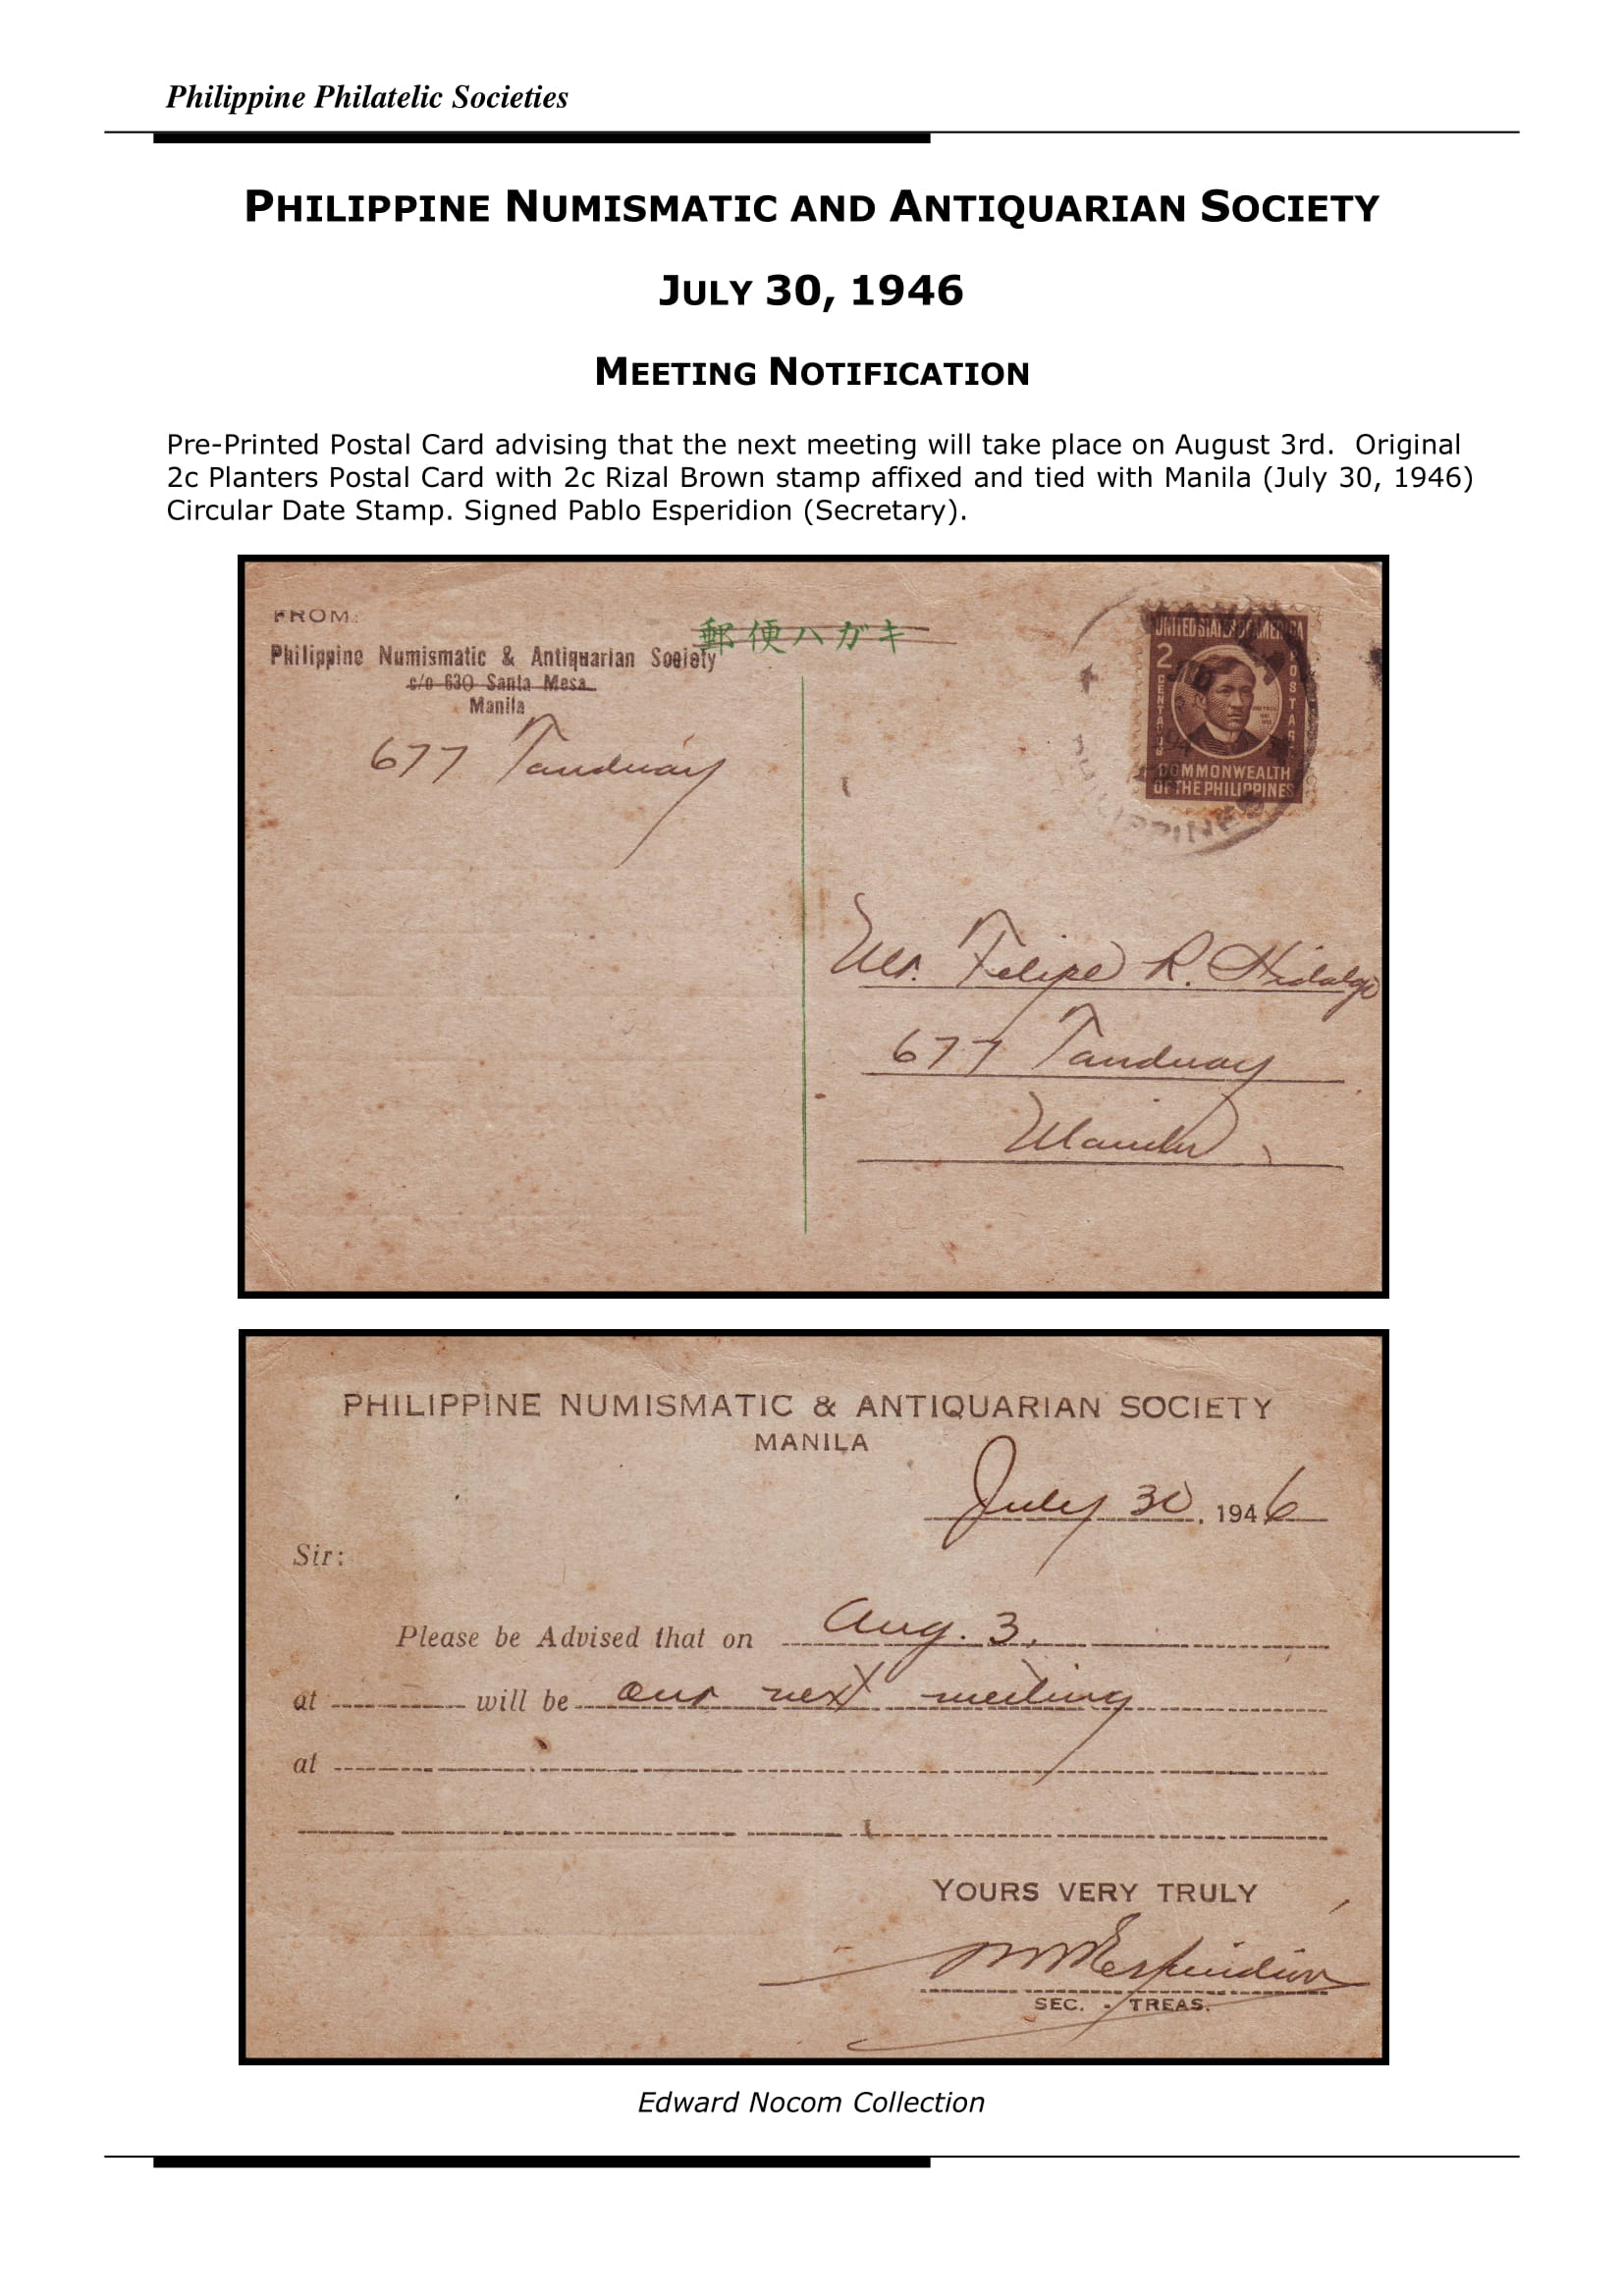 Philippine Philatelic Societies
PHILIPPINE NUMISMATIC AND ANTIQUARIAN SOCIETY
JULY 30, 1946
MEETING NOTIFICATION
Pre-Printed Postal Card advising that the next meeting will take place on August 3rd. Original
2c Planters Postal Card with 2c Rizal Brown stamp affixed and tied with Manila (July 30, 1946)
Circular Date Stamp. Signed Pablo Esperidion (Secretary).
FROM:
Philippine Numismatic & Antiquarian Society
c/o 630 Santa Mesa
Manila
677 Tanduay
郵便ハガキ
UNITED STATES OF AMERICA
2
CENTAVOS
POSTAGE
COMMONWEALTH
OF THE PHILIPPINES
Mr. Felipe R. Hidalgo
677 Tanduay
Manila
PHILIPPINE NUMISMATIC & ANTIQUARIAN SOCIETY
MANILA
July 30, 1946
Sir:
Please be Advised that on Aug. 3,
at will be our next meeting
at
YOURS VERY TRULY
Esperidion
SEC. - TREAS.
Edward Nocom Collection